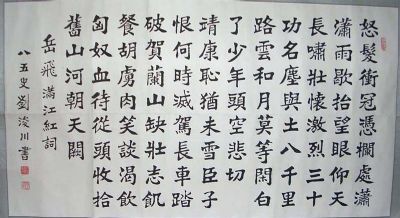 怒髮衝冠憑欄處瀟
瀟雨歇抬望眼仰天
長嘯壯懷激烈三十
功名塵與土八千里
路雲和月莫等閑白
了少年頭空悲切
靖康恥猶未雪臣子
恨何時滅駕長車踏
破賀蘭山缺壯志飢
餐胡虜肉笑談渴飲
匈奴血待從頭收拾
舊山河朝天闕
岳飛滿江紅詞
八五叟劉浚川書